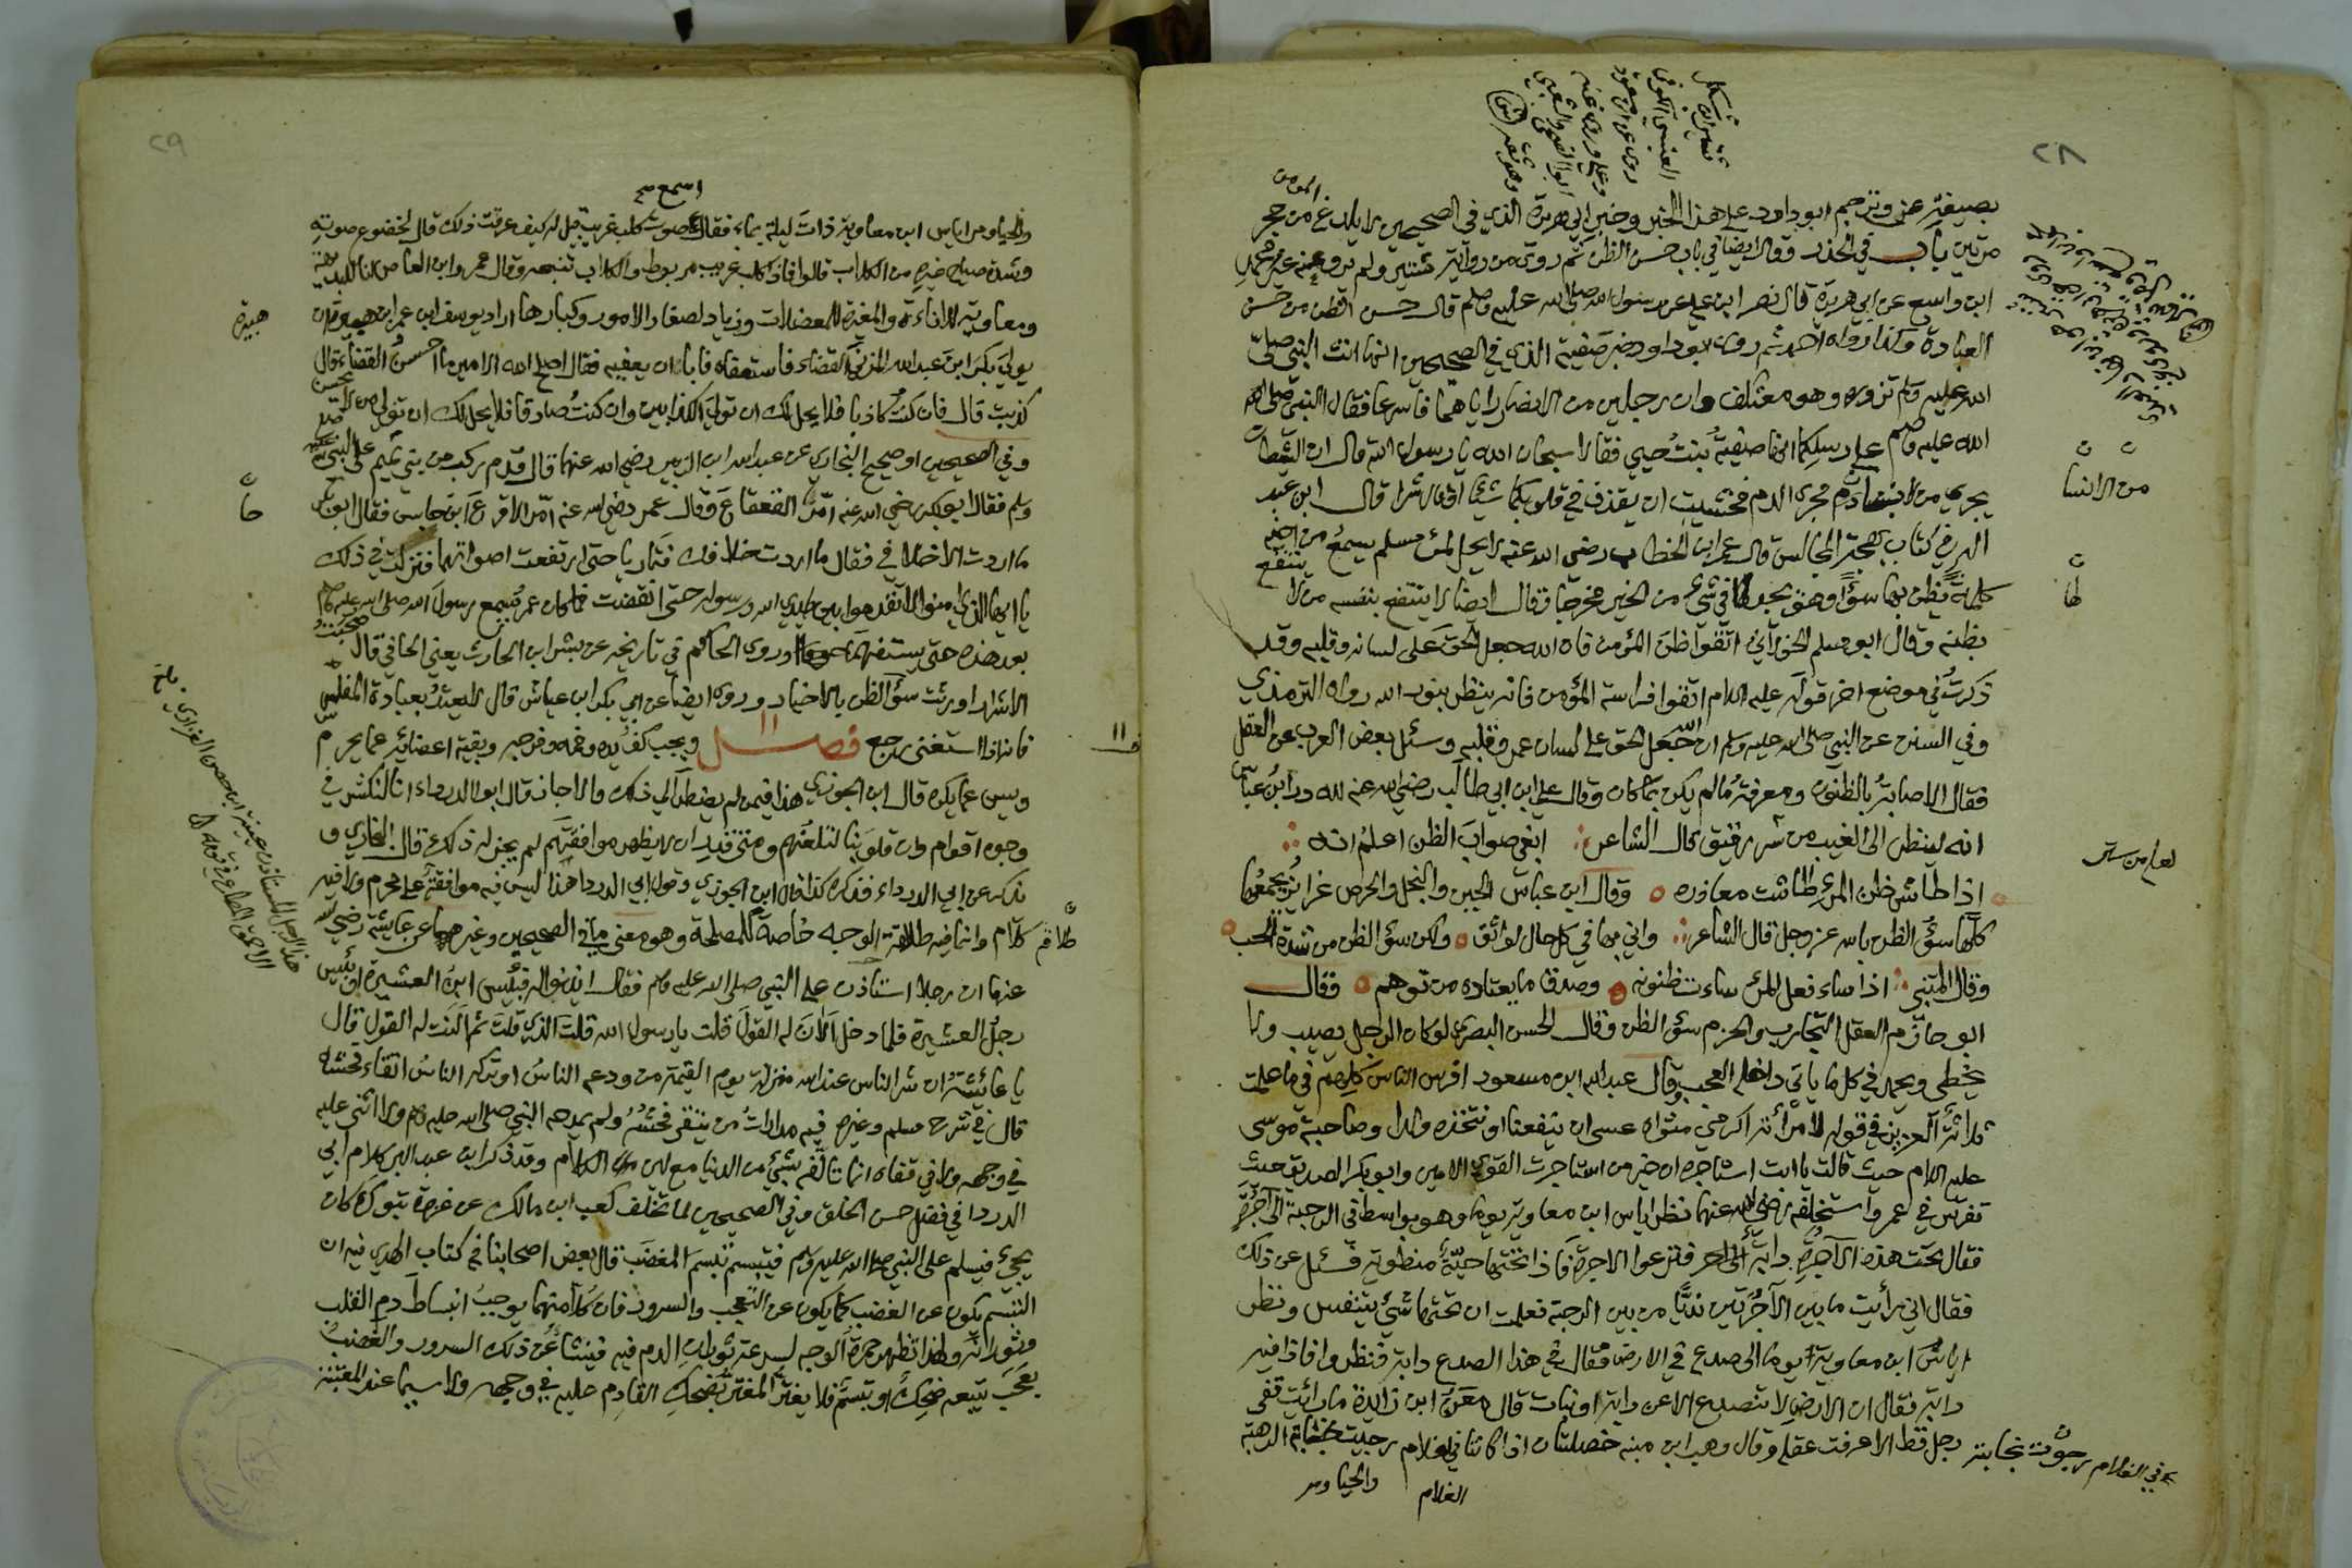 ٢٨
شتير ابن شكل
العبسي الكوفي
روى عن ابن مسعود
وعلي وروى عنه
ابو الضحى والشعبي
وهو ثقة
المؤمن
بصيغة عن وترجم ابو داود على هذا الخبر وخبر ابي هريرة الذي في الصحيحين لا يلدغ من جحر
مرتين باب في الحذر وقال ايضا في باب حسن الظن ثم روى من رواية شتير ولم يرو عنه غير محمد
ابن واسع عن ابي هريرة قال نصر ابن علي عن رسول الله صلى الله عليه وسلم قال حسن الظن من حسن
العبادة وكذا رواه احمد ثم روى ابو داود خبر صفية الذي في الصحيحين انها اتت النبي صلى
الله عليه وسلم تزوره وهو معتكف وان رجلين من الانصار راياهما فاسرعا فقال النبي صلى
الله عليه وسلم على رسلكما انها صفية بنت حيي فقالا سبحان الله يا رسول الله قال ان الشيطان
يجري من الانسان مجرى الدم فخشيت ان يقذف في قلوبكما شيئا او قال شرا قال ابن عبد
من الانسا
البر في كتاب بهجة المجالس قال عمر ابن الخطاب رضي الله عنه لا يحل لمرئ مسلم يسمع من اخيه
كلمة فظن بها سوءًا وهو يجد لها في شيء من الخير مخرجا وقال ايضا لا ينتفع بنفسه من لا ينتفع
لها
بظنه وقال ابو مسلم الخولاني اتقوا ظن المؤمن فان الله جعل الحق على لسانه وقلبه وقد
ذكرت في موضع اخر قوله عليه السلام اتقوا فراسة المؤمن فانه ينظر بنور الله رواه الترمذي
وفي السنن عن النبي صلى الله عليه وسلم ان الله جعل الحق على لسان عمر وقلبه وسئل بعض العرب عن العقل
فقال الاصابة بالظنون ومعرفة ما لم يكن بما كان وقال علي ابن ابي طالب رضي الله عنه لله در ابن عباس
انه لينظر الى الغيب من ستر رقيق قال الشاعر ابغي صواب الظن اعلم انه
لعله من ستر
اذا طاش ظن المرء طاشت معاذره وقال ابن عباس الجبن والبخل والحرص غرايز يجمعها
كلها سوء الظن بالله عز وجل قال الشاعر واني بها في كل حال لواثق ولكن سوء الظن من شدة الحب
وقال المتنبي اذا ساء فعل المرء ساءت ظنونه وصدق ما يعتاده من توهم وقال
ابو حازم العقل التجارب والحزم سوء الظن وقال الحسن البصري لو كان الرجل يصيب ولا
يخطي ويحمد في كل ما ياتي داخله العجب وقال عبد الله ابن مسعود افرس الناس كلهم فيما علمت
ثلاثة العزيز في قوله لامرأته اكرمي مثواه عسى ان ينفعنا او نتخذه ولدا وصاحبة موسى
عليه السلام حيث قالت يا ابت استاجره ان خير من استاجرت القوي الامين وابو بكر الصديق حيث
تفرس في عمر واستخلفه رضي الله عنهما نظر اياس ابن معاوية يوما وهو بواسط في الرحبة الى آجرة
فقال تحت هذه الآجرة دابة فنزعوا الاجرة فاذا تحتها حية منطوية فسئل عن ذلك
فقال اني رأيت ما بين الآجرتين نديًا من بين الرحبة فعلمت ان تحتها شيء يتنفس ونظر
اياس ابن معاوية يوما الى صدع في الارض فقال في هذا الصدع دابة فنظروا فاذا فيه
دابة فقال ان الارض لا تنصدع الا عن دابة او نبات قال معن ابن زايدة ما رايت قفى
رجل قط الا عرفت عقله وقال وهب ابن منبه خصلتان اذا كانتا في الغلام رجيت نجابته الرهبة
في الغلام رجوت نجابته
الغلام
والحياء ومر
٢٩
اسمع
والحياء ومر اياس ابن معاوية ذات ليلة بماء فقال صوت كلب غريب قيل له كيف عرفت ذلك قال لخضوع صوته
وشدة صياح غيره من الكلاب قالوا فاذا كلب غريب مربوط والكلاب تنبحه وقال عمرو ابن العاص انا للبديهة
ومعاوية للاناءة والمغيرة للمعضلات وزياد لصغار الامور وكبارها اراد يوسف ابن عمر ابن هبيرة ان
هبيرة
يولي بكر ابن عبد الله المزني القضاء فاستعفاه فابا ان يعفيه فقال اصلح الله الامير ما احسن القضاء قال
كذبت قال فان كنت كاذبا فلا يحل لك ان تولي الكذابين وان كنت صادقا فلا يحل لك ان تولي من لا يحسن
وفي الصحيحين او صحيح البخاري عن عبد الله ابن الزبير رضي الله عنهما قال قدم ركب من بني تميم على النبي صلى الله عليه
وسلم فقال ابو بكر رضي الله عنه امّر القعقاع وقال عمر رضي الله عنه امّر الاقرع ابن حابس فقال ابو بكر
ما اردت الا خلافي فقال ما اردت خلافك فتماريا حتى ارتفعت اصواتهما فنزلت في ذلك
يا ايها الذين امنوا لا تقدموا بين يدي الله ورسوله حتى انقضت فما كان عمر يسمع رسول الله صلى الله عليه وسلم
بعد هذه حتى يستفهمه وروى الحاكم في تاريخه عن بشر ابن الحارث يعني الحافي قال صحبة
الاشرار اورثت سوء الظن بالاخيار وروى ايضا عن ابي بكر ابن عياش قال لا يعتد بعبادة المفلس
فانه اذا استغنى رجع فصل ١١ ويجب كف يده وفمه وفرجه وبقية اعضائه عما يحرم
١١
ويسن عما يكره قال ابن الجوزي هذا فيمن لم يضطر الى ذلك والا جاز قال ابو الدرداء انا لنكشر في
وجوه اقوام وان قلوبنا لتلعنهم ومتى قدر ان لا يظهر موافقتهم لم يجز له ذلك قال البخاري و
يذكر عن ابي الدرداء فذكره كذا قال ابن الجوزي وقول ابي الدرداء هذا ليس فيه موافقة على محرم ولا فيه
كلام وانما فيه طلاقة الوجه خاصة للمصلحة وهو معنى ما في الصحيحين وغيرهما عن عايشة رضي الله
عنها ان رجلا استاذن على النبي صلى الله عليه وسلم فقال ايذنوا له فبئس ابن العشيرة او بئس
رجل العشيرة فلما دخل ألان له القول قلت يا رسول الله قلت الذي قلت ثم ألنت له القول قال
يا عائشة ان شر الناس عند الله منزلة يوم القيمة من ودعه الناس او تركه الناس اتقاء فحشه
قال في شرح مسلم وغيره فيه مدارات من يتقى فحشه ولم يمدحه النبي صلى الله عليه وسلم ولا اثنى عليه
في وجهه ولا في قفاه انما تالفه بشيء من الدنيا مع لين الكلام وقد ذكر ابن عبد البر كلام ابي
الدرداء في فضل حسن الخلق وفي الصحيحين لما تخلف كعب ابن مالك عن غزوة تبوك كان
يجيء فيسلم على النبي صلى الله عليه وسلم فيتبسم تبسم المغضب قال بعض اصحابنا في كتاب الهدي فيه ان
التبسم يكون عن الغضب كما يكون عن التعجب والسرور فان كلا منهما يوجب انبساط دم القلب
وثورانه ولهذا تظهر حمرة الوجه لسرعة ثوران الدم فيه فينشا عن ذلك السرور والغضب
تعجب يتبعه ضحك او تبسم فلا يغتر المغتر بضحك القادم عليه في وجهه ولا سيما عند المعتبة
هذا الرجل المستاذن عيينة ابن حصن الفزاري
الاحمق المطاع في قومه